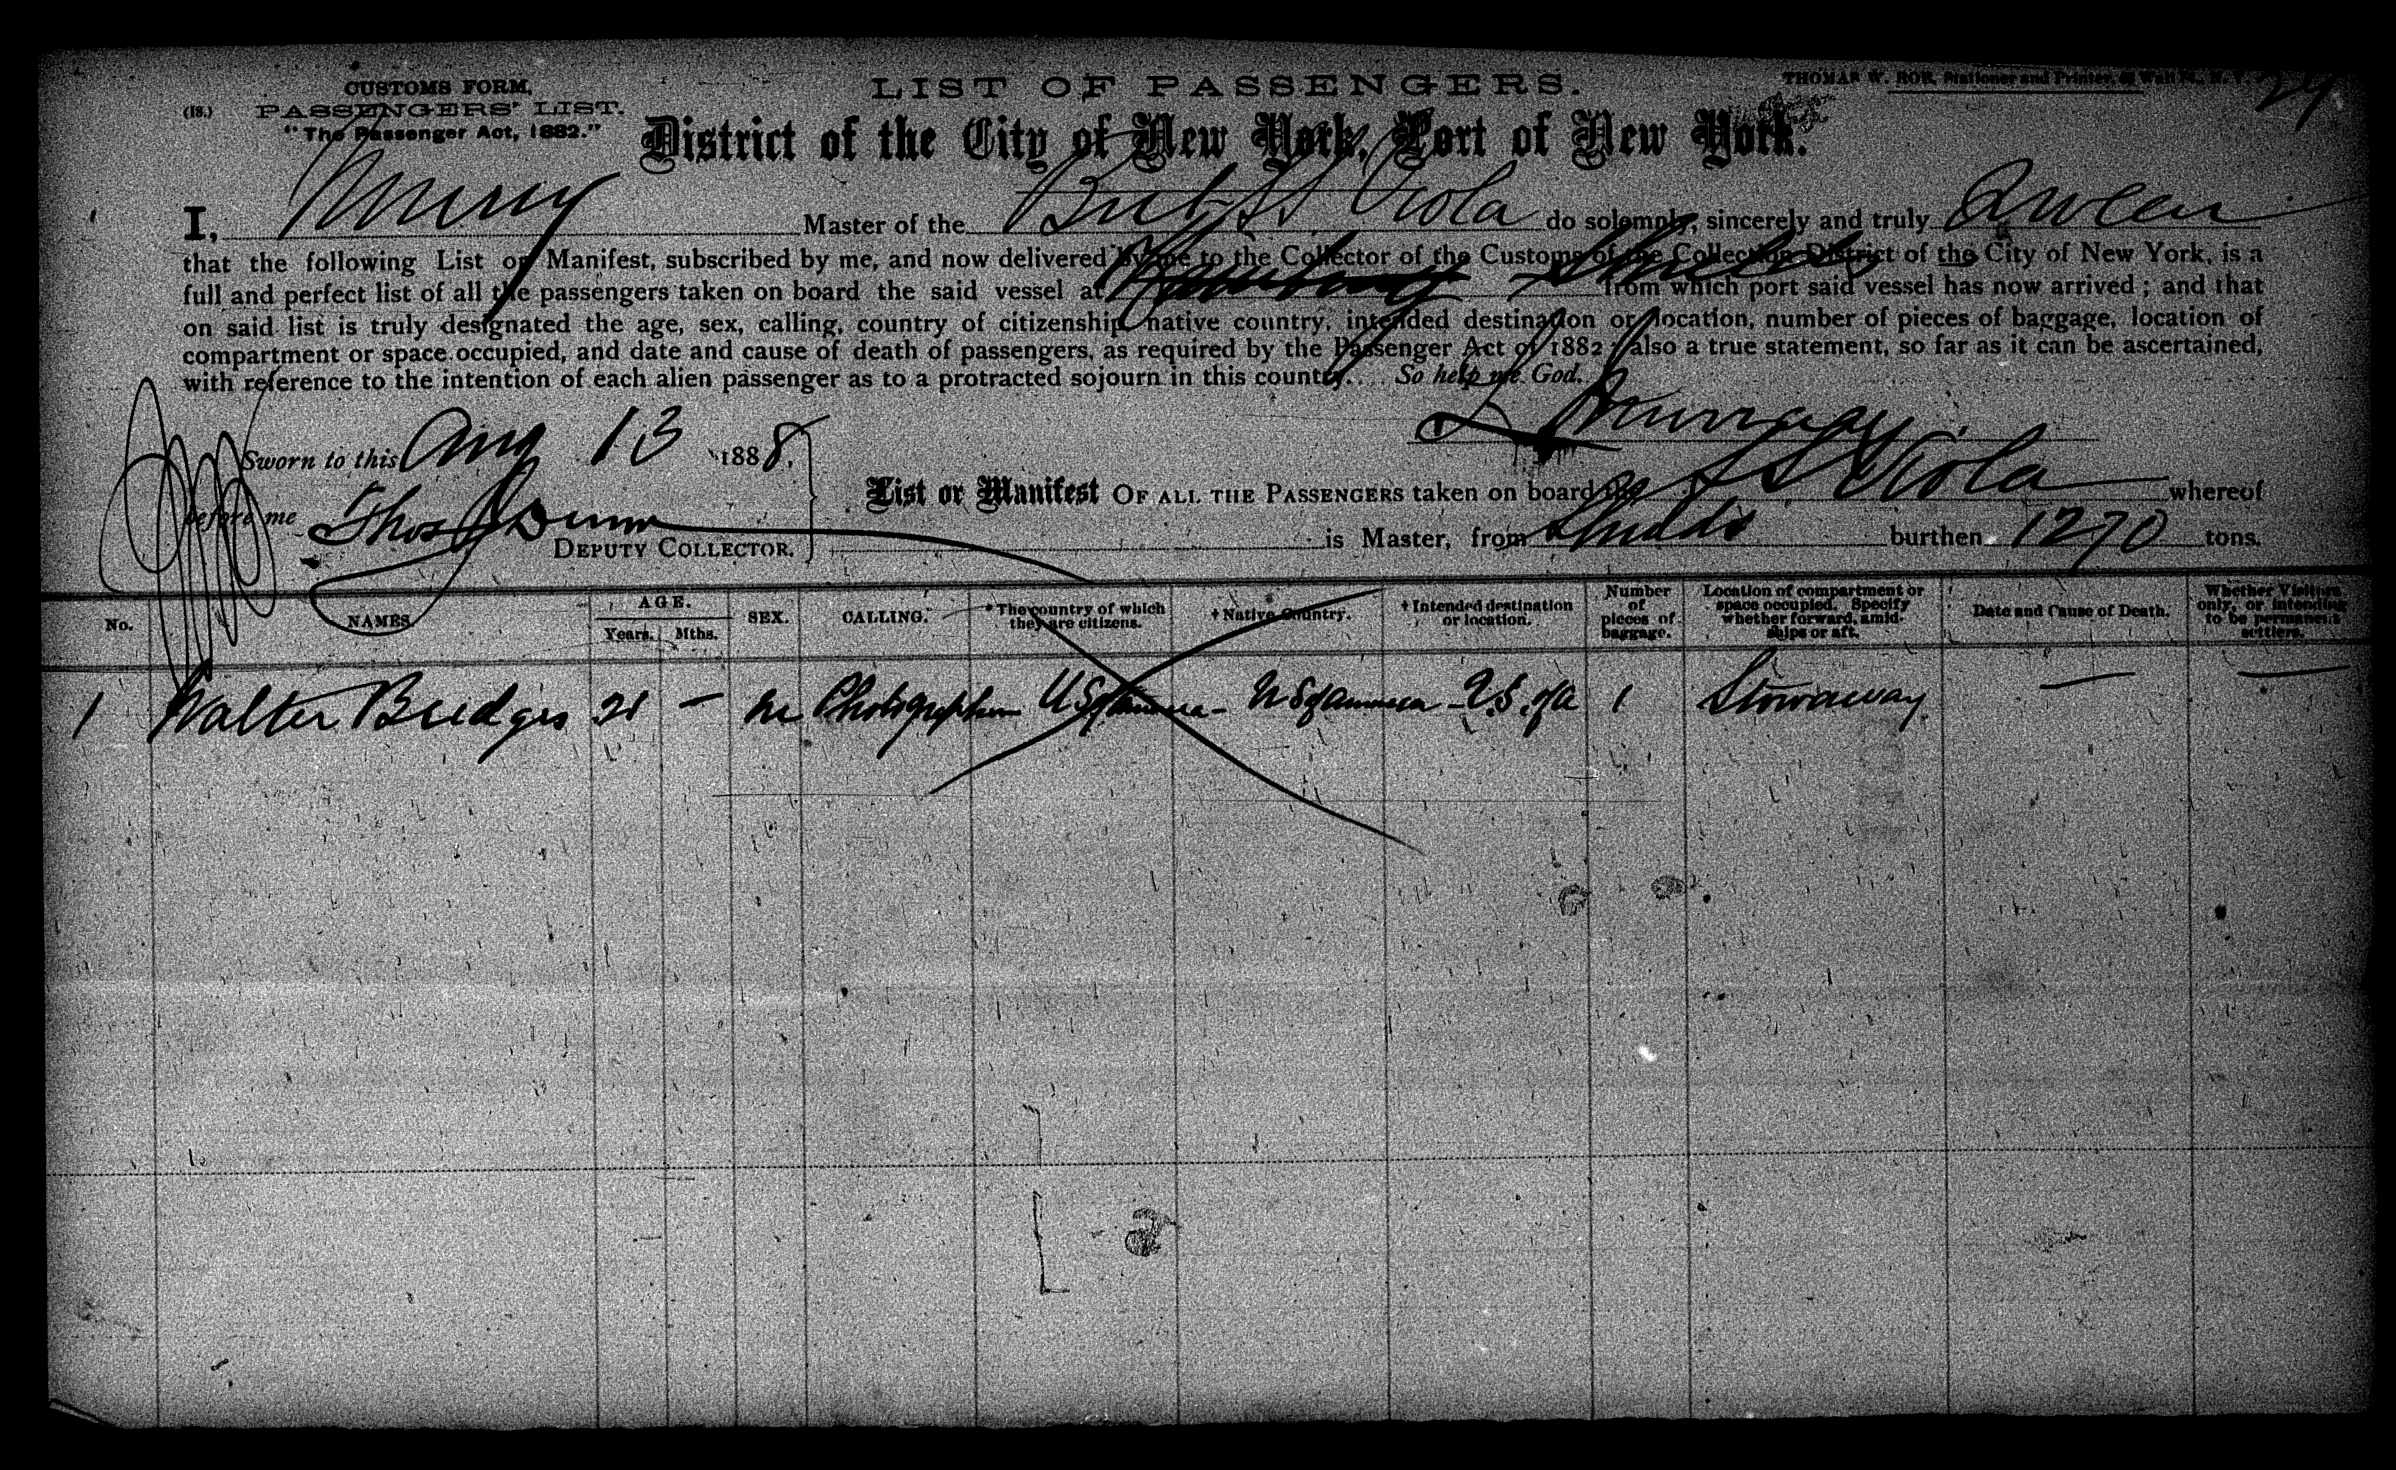 CUSTOMS FORM,
(18.) PASSENGERS' LIST.
"The Passenger Act, 1882."
LIST OF PASSENGERS.
THOMAS W. ROE, Stationer and Printer, Wall St., N. Y.
29
District of the City of New York, Port of New York.
I, Master of the Brit SS Viola do solemnly, sincerely and truly Swear
that the following List or Manifest, subscribed by me, and now delivered by me to the Collector of the Customs of the Collection District of the City of New York, is a
full and perfect list of all the passengers taken on board the said vessel at Hamburg Shields from which port said vessel has now arrived; and that
on said list is truly designated the age, sex, calling, country of citizenship, native country, intended destination or location, number of pieces of baggage, location of
compartment or space occupied, and date and cause of death of passengers, as required by the Passenger Act of 1882; also a true statement, so far as it can be ascertained,
with reference to the intention of each alien passenger as to a protracted sojourn in this country. So help me God.
Murray
Sworn to this Aug 13 1888.
before me Thos Dunn
DEPUTY COLLECTOR.
List or Manifest OF ALL THE PASSENGERS taken on board the SS Viola whereof
is Master, from Shields burthen 1270 tons.
No. NAMES. AGE. Years. Mths. SEX. CALLING. * The country of which they are citizens. † Native Country. † Intended destination or location. Number of pieces of baggage. Location of compartment or space occupied. Specify whether forward, amidships or aft. Date and Cause of Death. Whether Visiting only, or intending to be permanent settlers.
1 Walter Bridges 21 — m Photographer U S of America - U S of America - U.S. of A 1 Stowaway — —